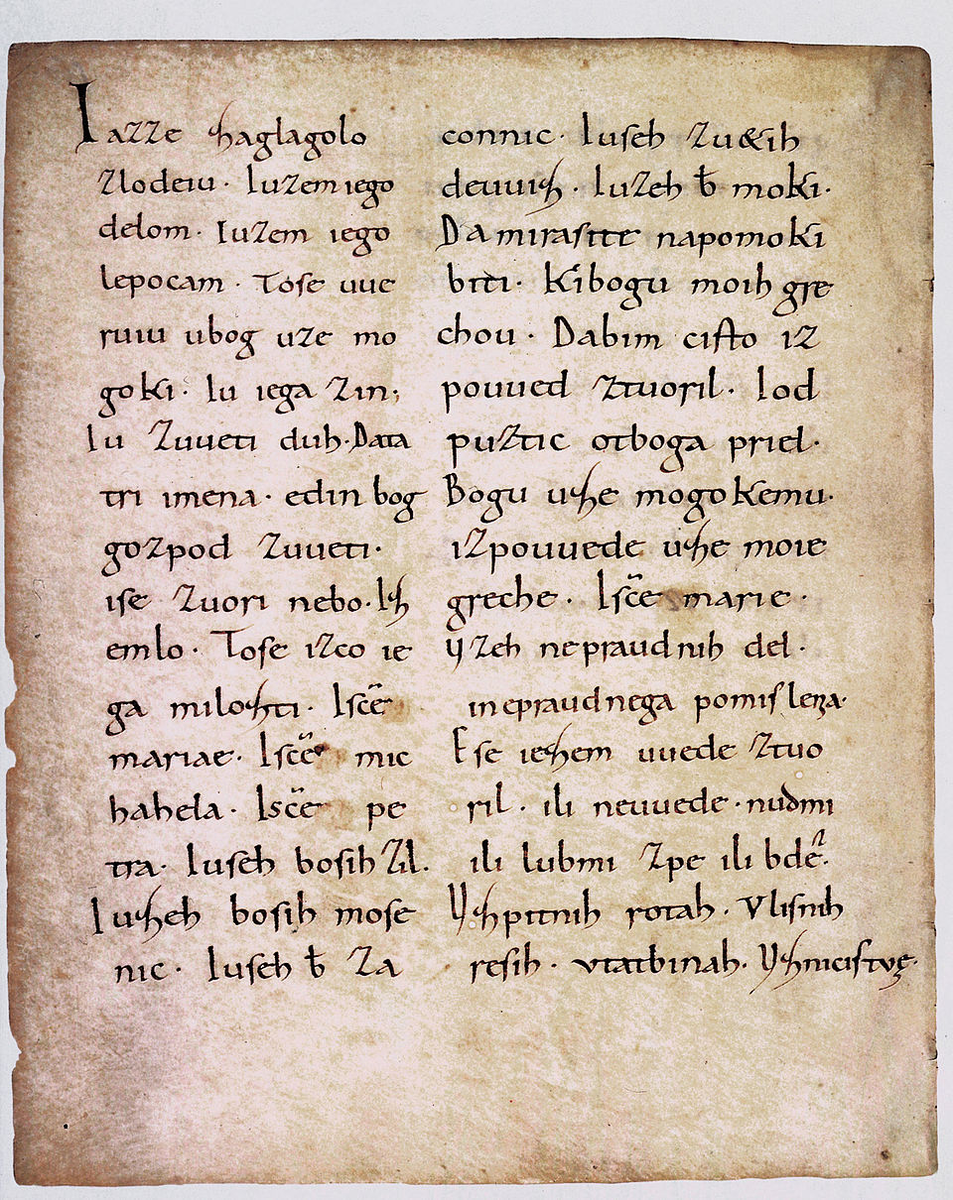 Iazze zaglagolo
zlodeiu · Iuzem iego
delom · Iuzem iego
lepocam · Tose uue
ruiu ubog uze mo
goki · Iu iega zin ·
Iu zuueti duh · Data
tri imena · edin bog
gozpod zuueti ·
ise zuori nebo · Iz
emlo · Tose izco ie
ga milozti · Isc̄e
mariae · Isc̄e mic
hahela · Isc̄e pe
tra · Iuseh bosih zil ·
Iuzeh bosih mose
nic · Iuseh b̄ za
connic · Iuseh zu&ih
deuuiz · Iuzeh b̄ moki ·
Da mirasite napomoki
biti · Kibogu moih gre
chou · Dabim cisto iz
pouued ztuoril · Iod
puztic otboga priel ·
Bogu uze mogokemu ·
izpouuede uze moie
greche · Isc̄e marie ·
Vzeh nepraudnih del ·
inepraudnega pomislenza ·
Ese iezem uuede ztuo
ril · ili neuuede · nudmi
ili lubmi zpe ili bde ·
Vzpitnih rotah · Vlisnih
resih · vtatbinah · Vznicistvę ·